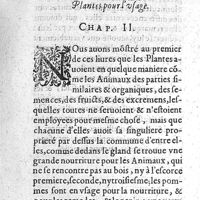 Plantes, pour l'vsage.
CHAP. II.
NOus auons môstré au premier
de ces liures que les Plantes a-
uoient en quelque maniere cõ-
me les Animaux des parties si-
milaires & organiques, des se-
mences, des fruicts, & des excremens, les-
quelles toutes ne seruoient & n'estoient
employees pour mesme chose, mais que
chacune d'elles auoit sa singuliere pro-
prieté par dessus la commune d'entr'elles,
comme dedans le gland se trouue vne
grande nourriture pour les Animaux, qui
ne se rencontre pas au bois, ny à l'escorce
premiere, seconde, ny troisiesme: les pom-
mes sont en vsage pour la nourriture, &